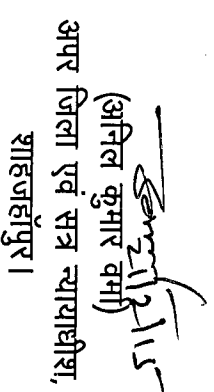 (अनिल कुमार वर्मा)
अपर जिला एवं सत्र न्यायाधीश,
शाहजहाँपुर।